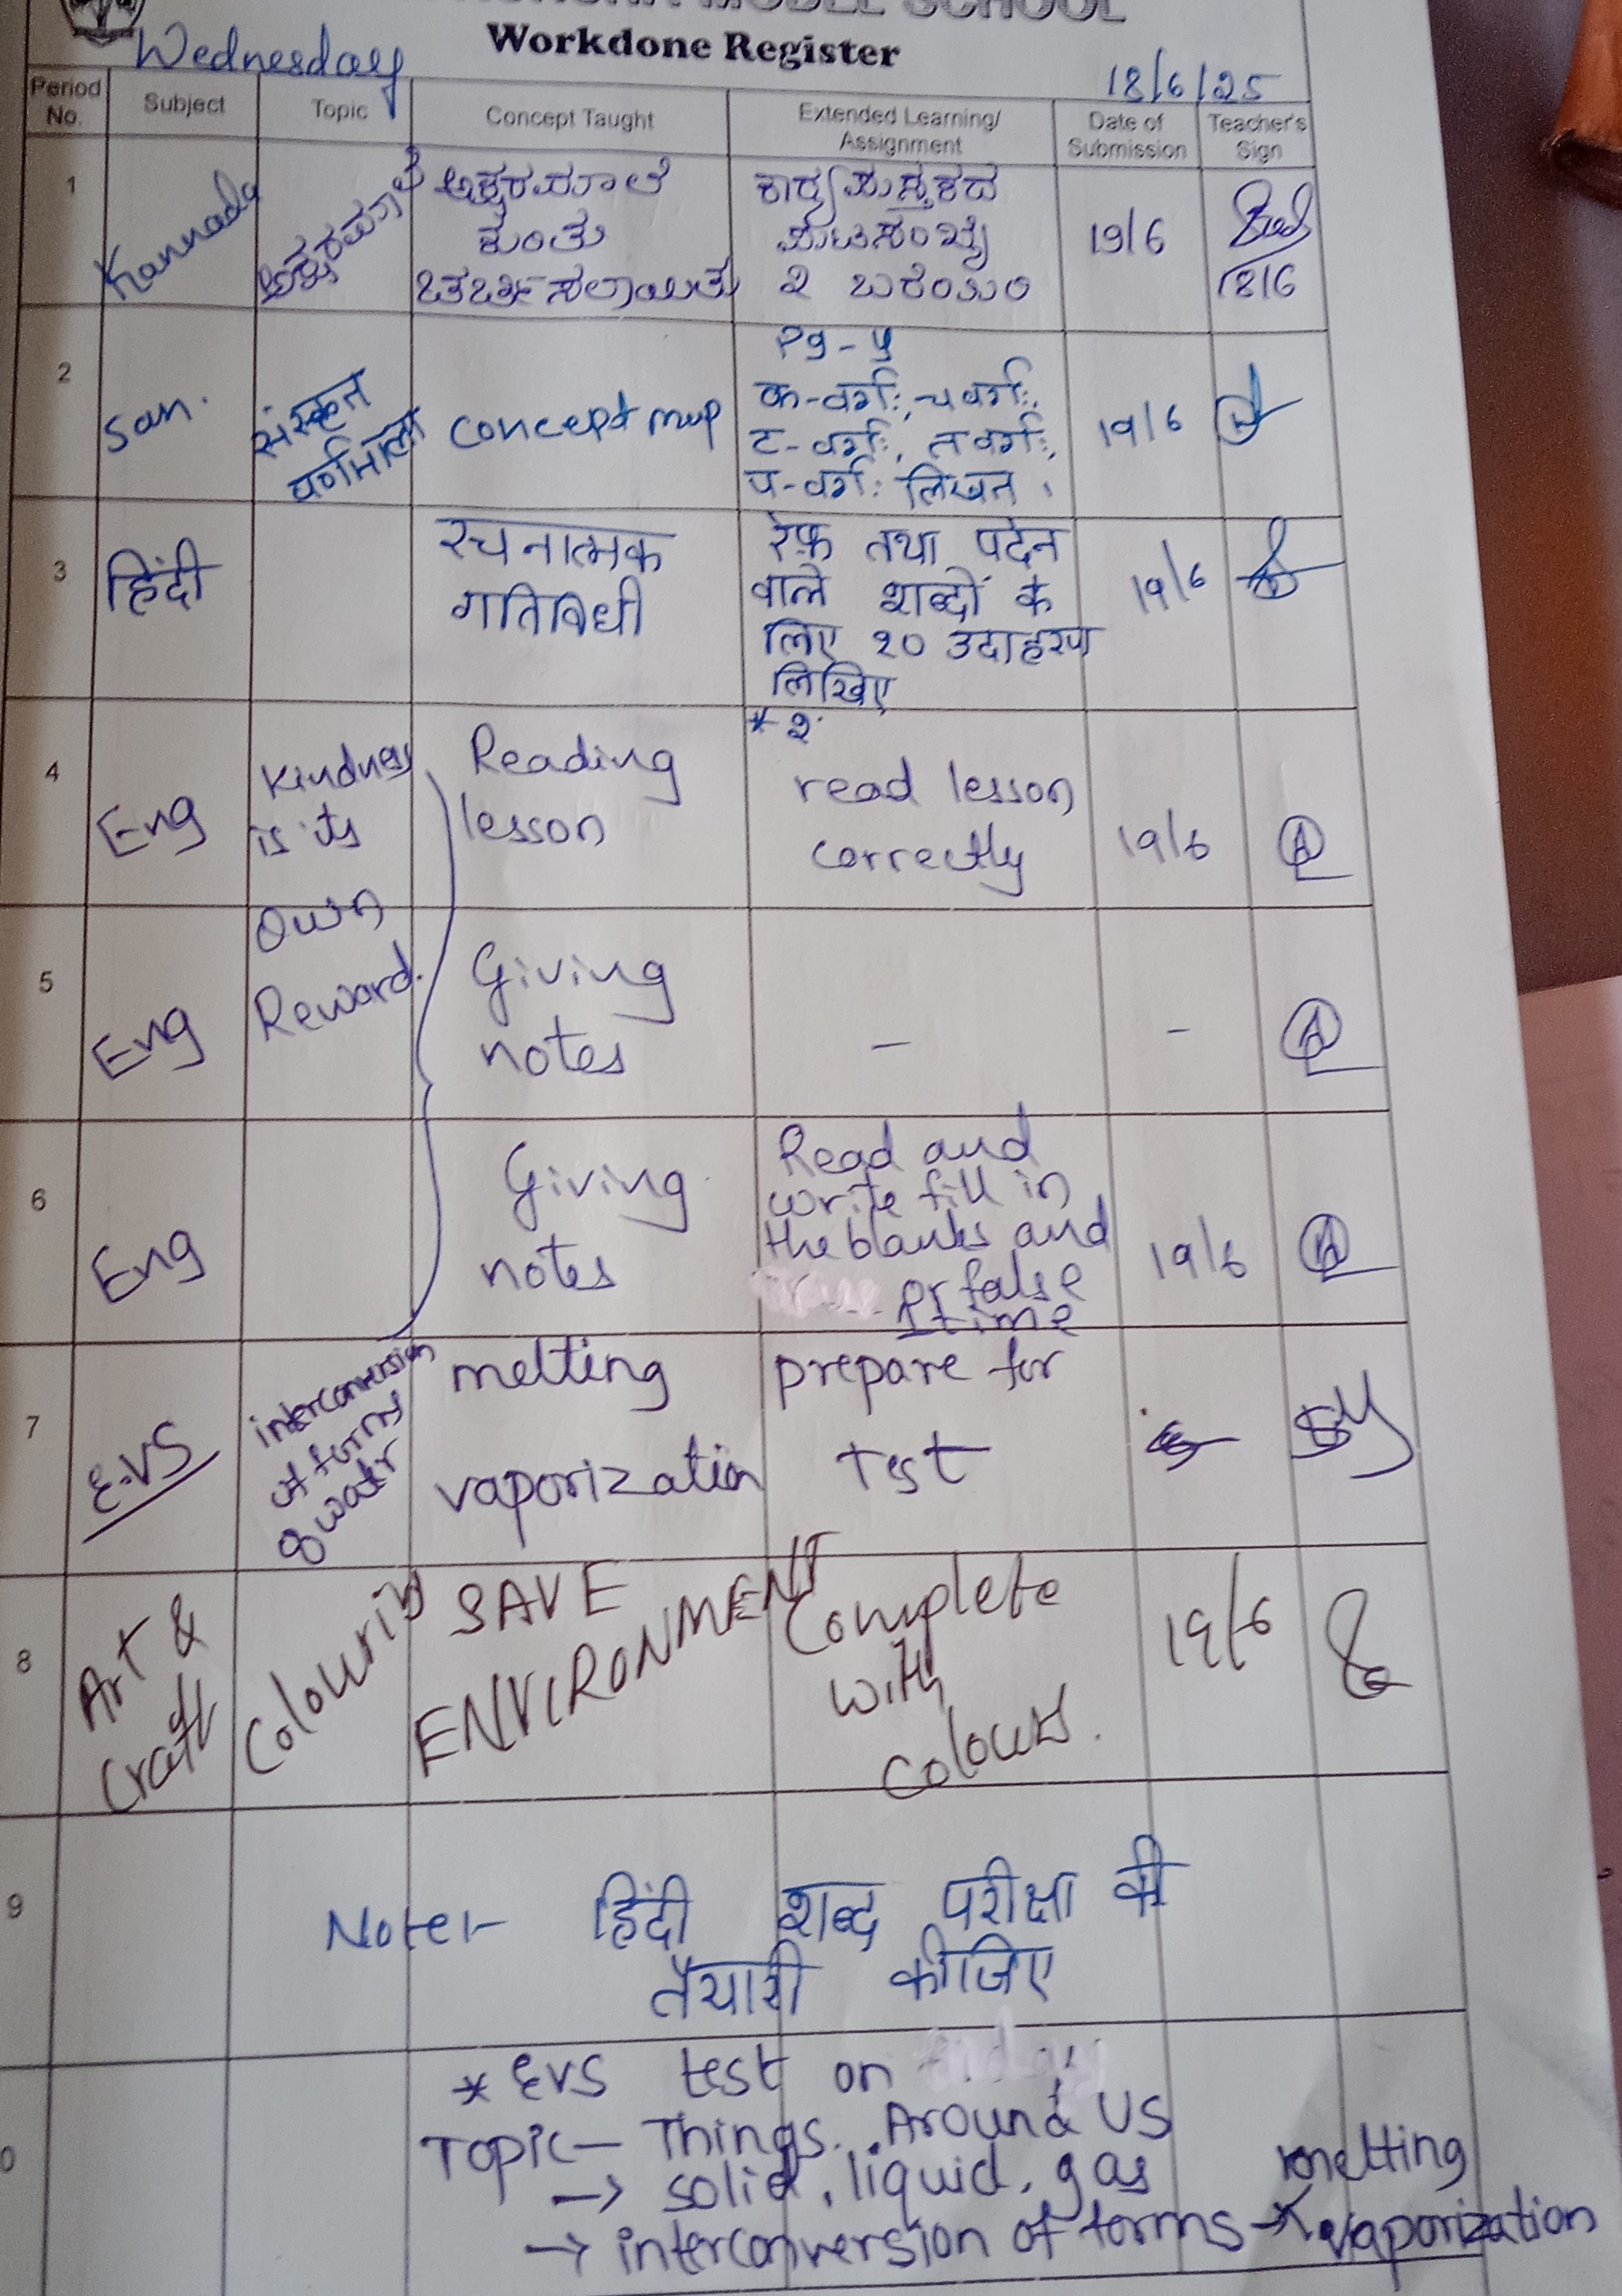 MODEL SCHOOL
Workdone Register
Wednesday
18/6/25
Period No.
Subject
Topic
Concept Taught
Extended Learning/
Assignment
Date of
Submission
Teacher's
Sign
1
Kannada
ಅಕ್ಷರಮಾಲೆ
ಅಕ್ಷರಮಾಲೆ
ಕುರಿತು
ಚರ್ಚಿಸಲಾಯಿತು
ಪುಟಸಂಖ್ಯೆ
೩ ಬರೆಯಿರಿ
19/6
18/6
2
San.
संस्कृत
वर्णमाला
Concept map
Pg - 4
क-वर्गः, च वर्गः,
ट-वर्गः, त वर्गः,
प-वर्गः लिखत ।
19/6
3
हिंदी
रचनात्मक
गतिविधी
रेफ़ तथा पदेन
वाले शब्दों के
लिए १० उदाहरण
लिखिए
* २
19/6
4
Eng
Kindness
is its
Own
Reward.
Reading
lesson
read lesson
correctly
19/6
5
Eng
Giving
notes
-
-
6
Eng
Giving
notes
Read and
write fill in
the blanks and
or false
1 time
19/6
7
E.VS
interconversion
of forms
of water
melting
vaporization
prepare for
Test
8
Art &
Craft
Colouring
SAVE
ENVIRONMENT
Complete
with
colours.
19/6
9
Note:- हिंदी शब्द परीक्षा की
तैयारी कीजिए
0
* EVS test on
Topic - Things Around US
→ solid, liquid, gas
melting
→ interconversion of forms → vaporization